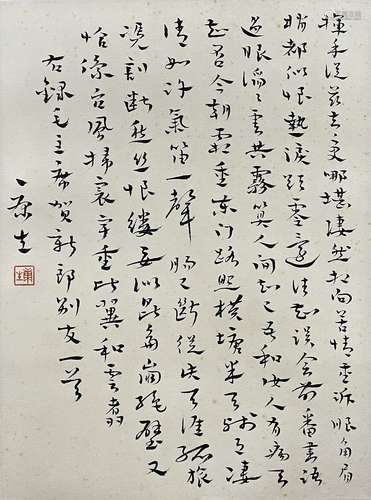 揮手從兹去更哪堪凄然相向苦情重訴眼角眉
梢都似恨熱淚欲零還住知誤會前番書語
過眼滔滔雲共霧算人間知己吾和汝人有病天
知否今朝霜重東门路照橫塘半天残月凄
清如許氣笛一聲腸已斷從此天涯孤旅
凭割斷愁丝恨缕要似昆侖崩绝壁又
恰像台風掃寰宇重比翼和雲翥
右錄毛主席贺新郎别友一首
康生